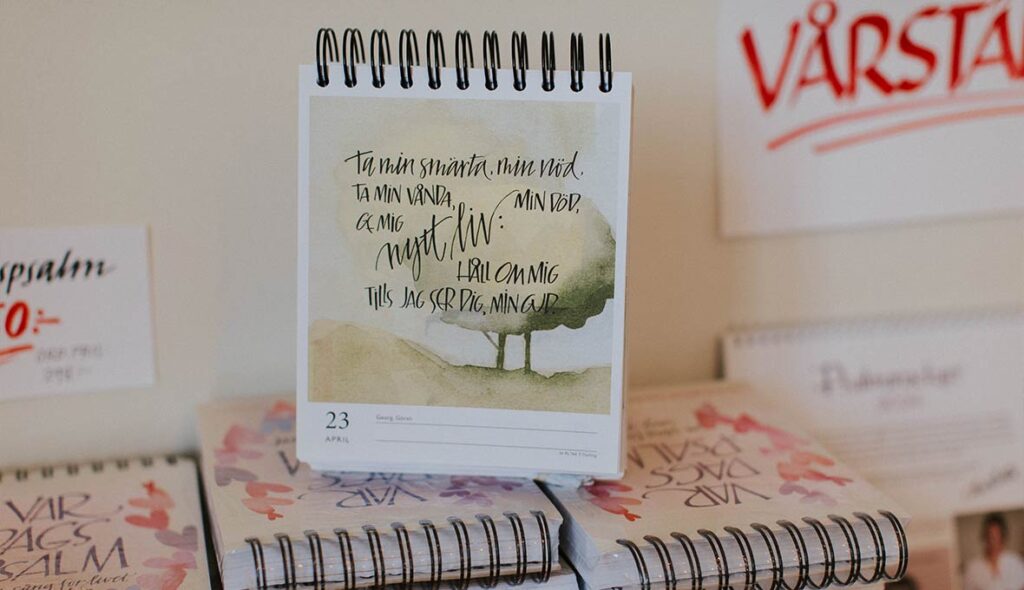 Ta min smärta, min nöd.
TA MIN VÅNDA, MIN DÖD,
GE MIG
nytt liv:
HÅLL OM MIG
TILLS JAG SER DIG, MIN GUD.
23
APRIL
Georg, Göran
VÅRSTÄ
spsalm
0:-
ORD PRIS
VAR
DAGS
PSALM
VAR
DAGS
PSALM
VAR
DAGS
PSALM
en sång för livet